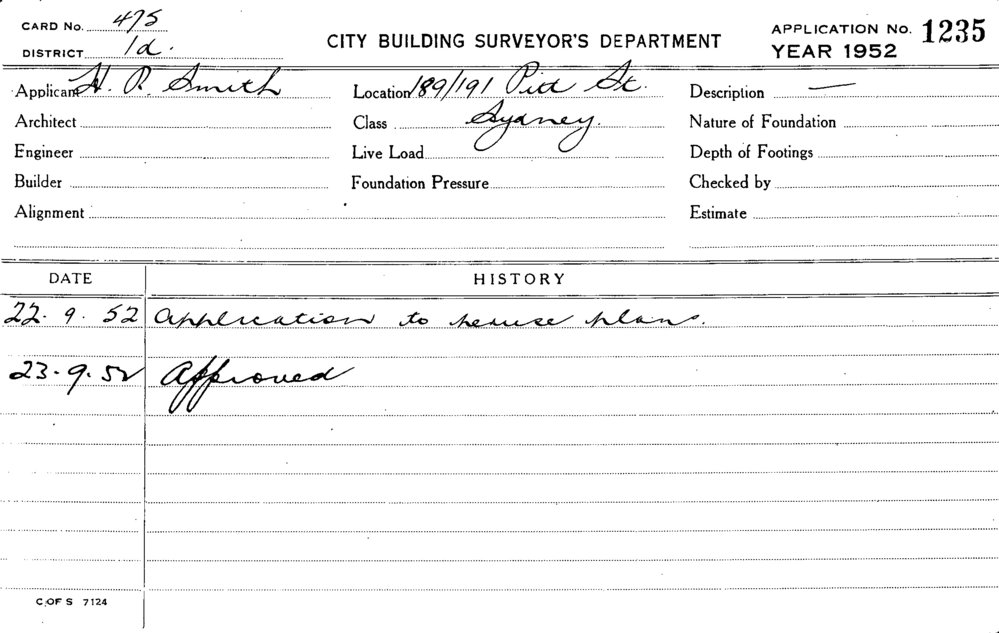 CARD No. 475
DISTRICT 1d.
CITY BUILDING SURVEYOR'S DEPARTMENT
APPLICATION No. 1235
YEAR 1952
Applicant H. R. Smith Location 189/191 Pitt St. Description —
Architect Class Sydney. Nature of Foundation
Engineer Live Load Depth of Footings
Builder Foundation Pressure Checked by
Alignment Estimate
DATE HISTORY
22. 9. 52 Application to peruse plans.
23. 9. 52 Approved
C OF S 7124